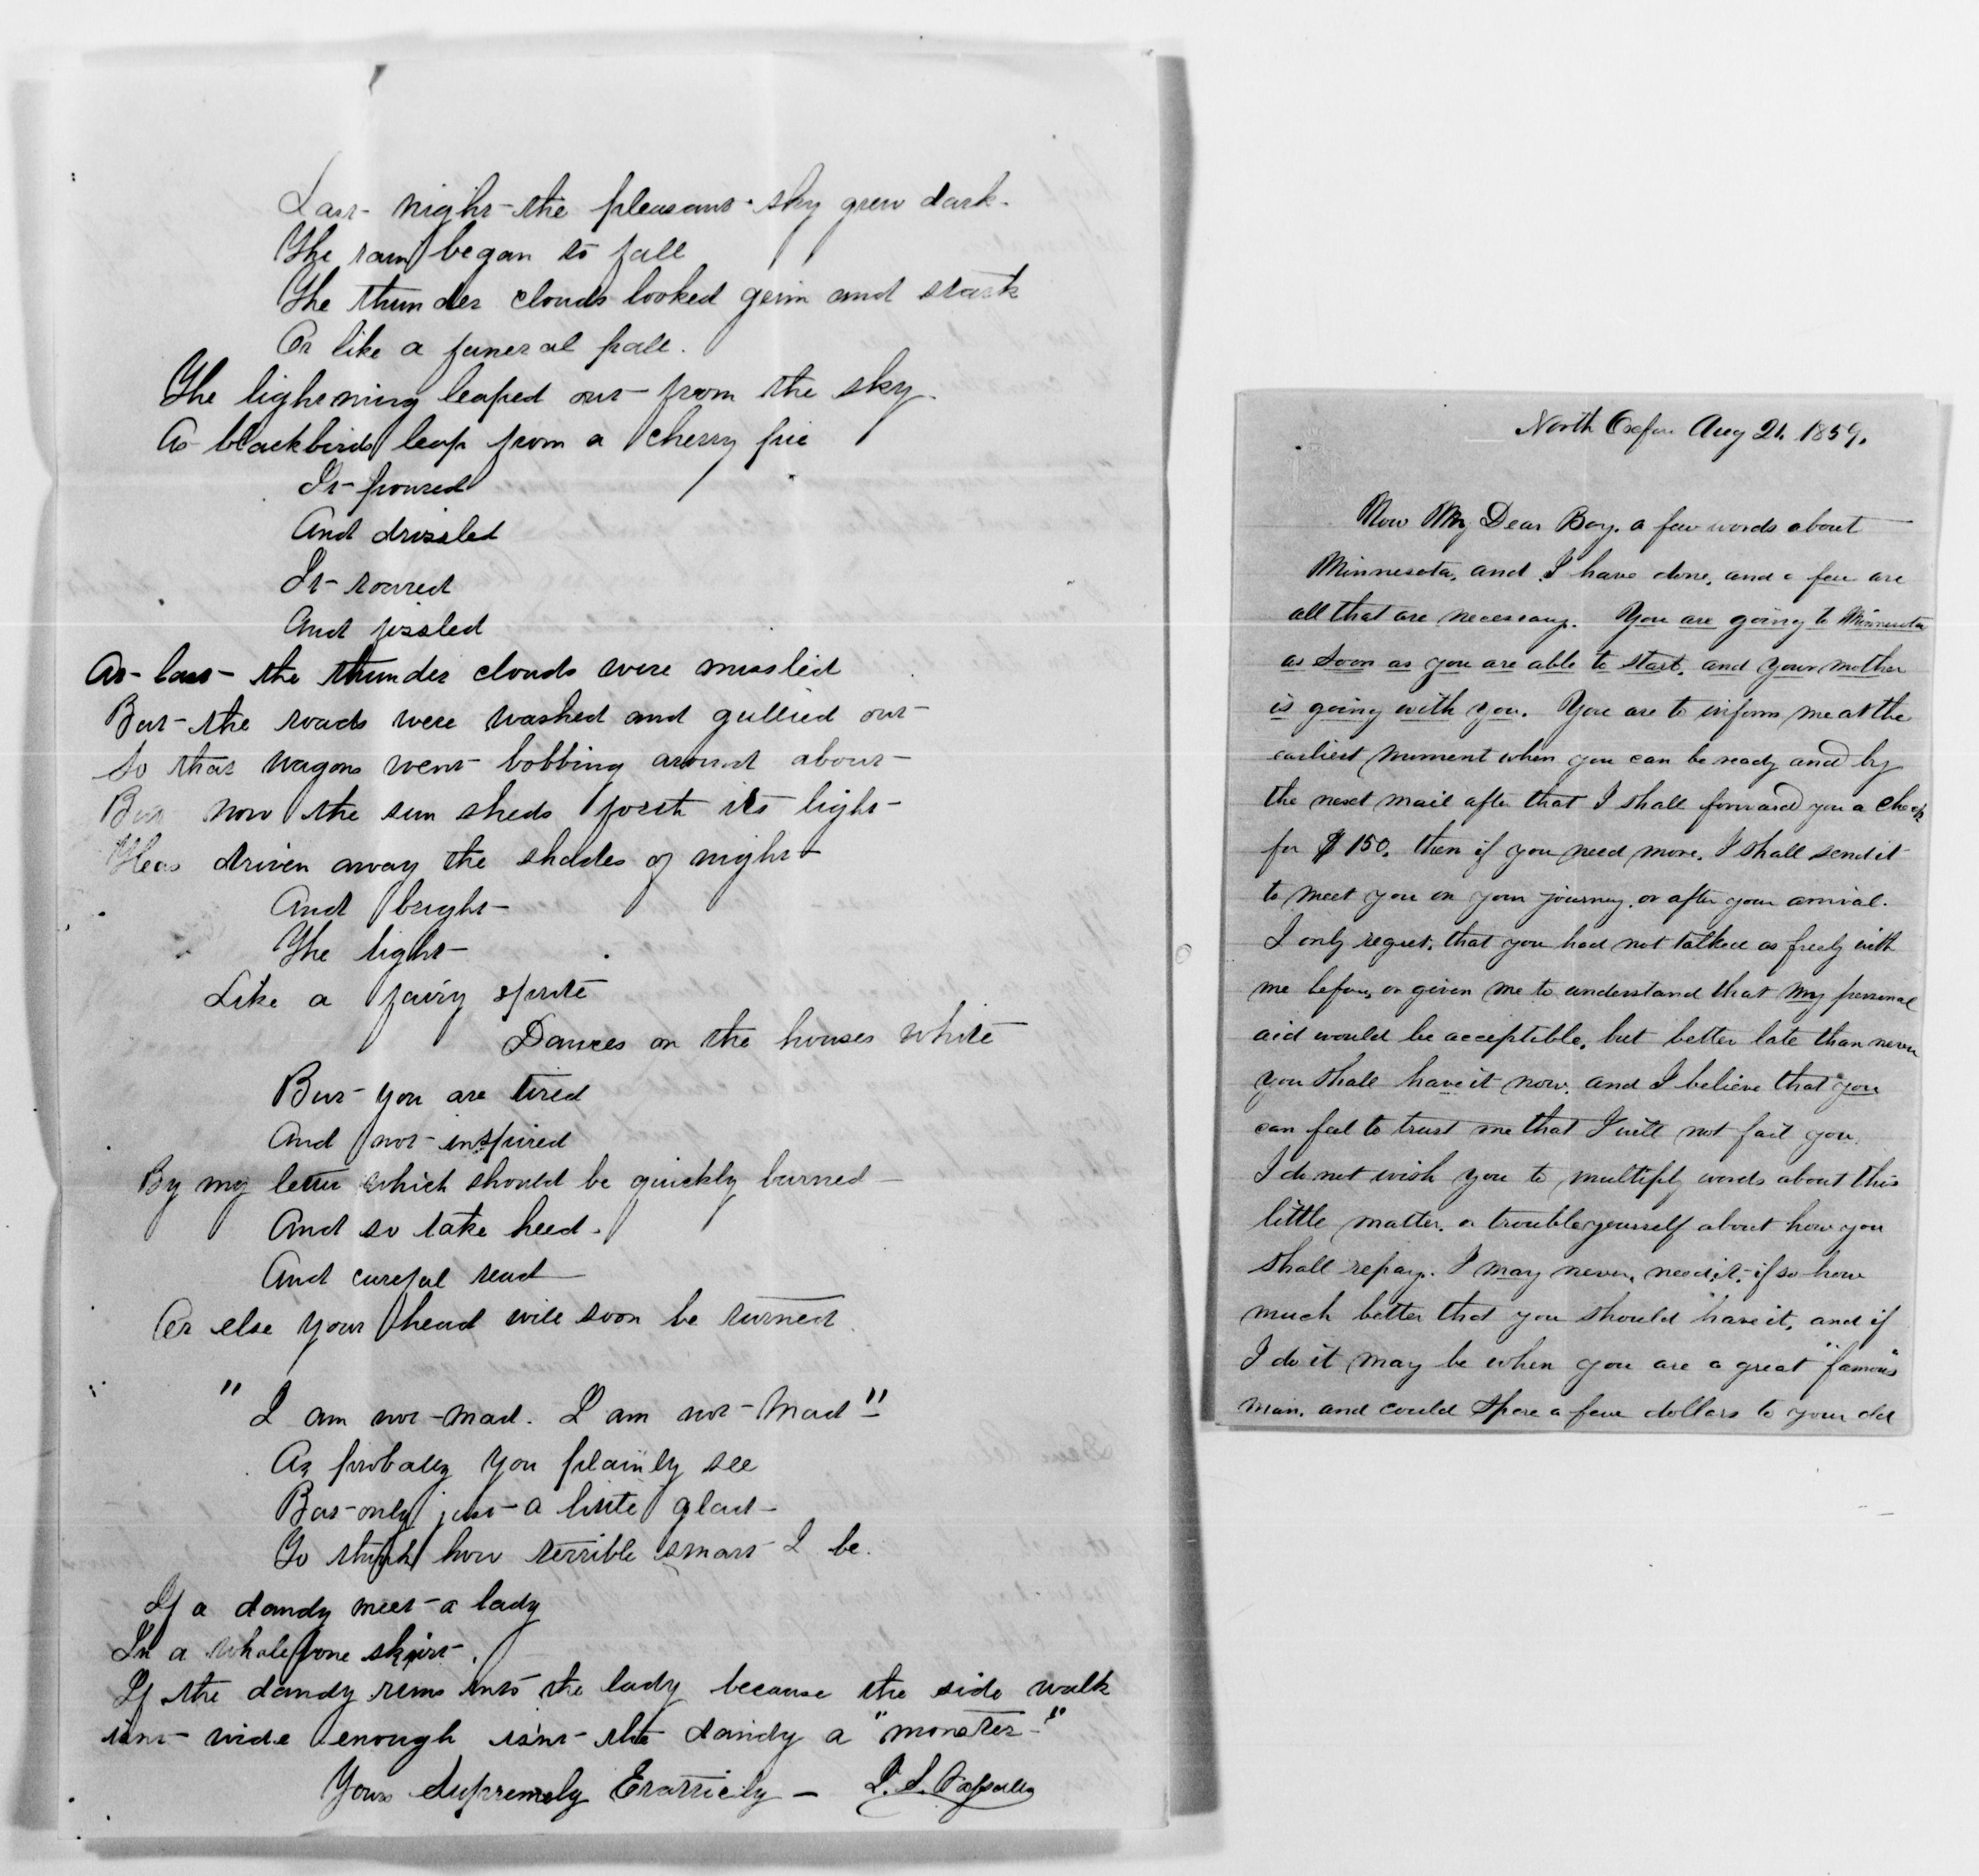 Last night the pleasant sky grew dark.
The rain began to fall
The thunder clouds looked grim and stark
Or like a funeral pall.
The lightning leaped out from the sky.
As blackbirds leap from a cherry pie
It poured
And drizzled
It roared
And fizzled
At last the thunder clouds were mizzled
But the roads were washed and gullied out
So that wagons went bobbing around about
But now the sun sheds forth its light
Has driven away the shades of night
And bright
The light
Like a fairy sprite
Dances on the houses white
But you are tired
And not inspired
By my letter which should be quickly burned
And so take heed.
And careful read
Or else your head will soon be turned.
"I am not mad. I am not mad"
As probably you plainly see
But only just a little glad
To think how terrible smart I be.
If a dandy meet a lady
In a whalebone skirt.
If the dandy runs into the lady because the side walk
isnt wide enough isn't the dandy a "monster"
Yours Supremely Eratticly
North Aug 21. 1859.
Now My Dear Boy. a few words about
Minnesota, and I have done, and a few are
all that are necessary. You are going to Minnesota
as soon as you are able to start, and your mother
is going with you. You are to inform me at the
earliest moment when you can be ready and by
the next mail after that I shall forward you a check
for $150. then if you need more, I shall send it
to meet you on your journey, or after your arrival.
I only regret, that you had not talked as freely with
me before, or given me to understand that my personal
aid would be acceptible, but better late than never
you shall have it now, and I believe that you
can feel to trust me that I will not fail you.
I do not wish you to multiply words about this
little matter, or trouble yourself about how you
shall repay. I may never, need it, if so how
much better that you should have it, and if
I do it may be when you are a great "famous"
man, and could spare a few dollars to your old